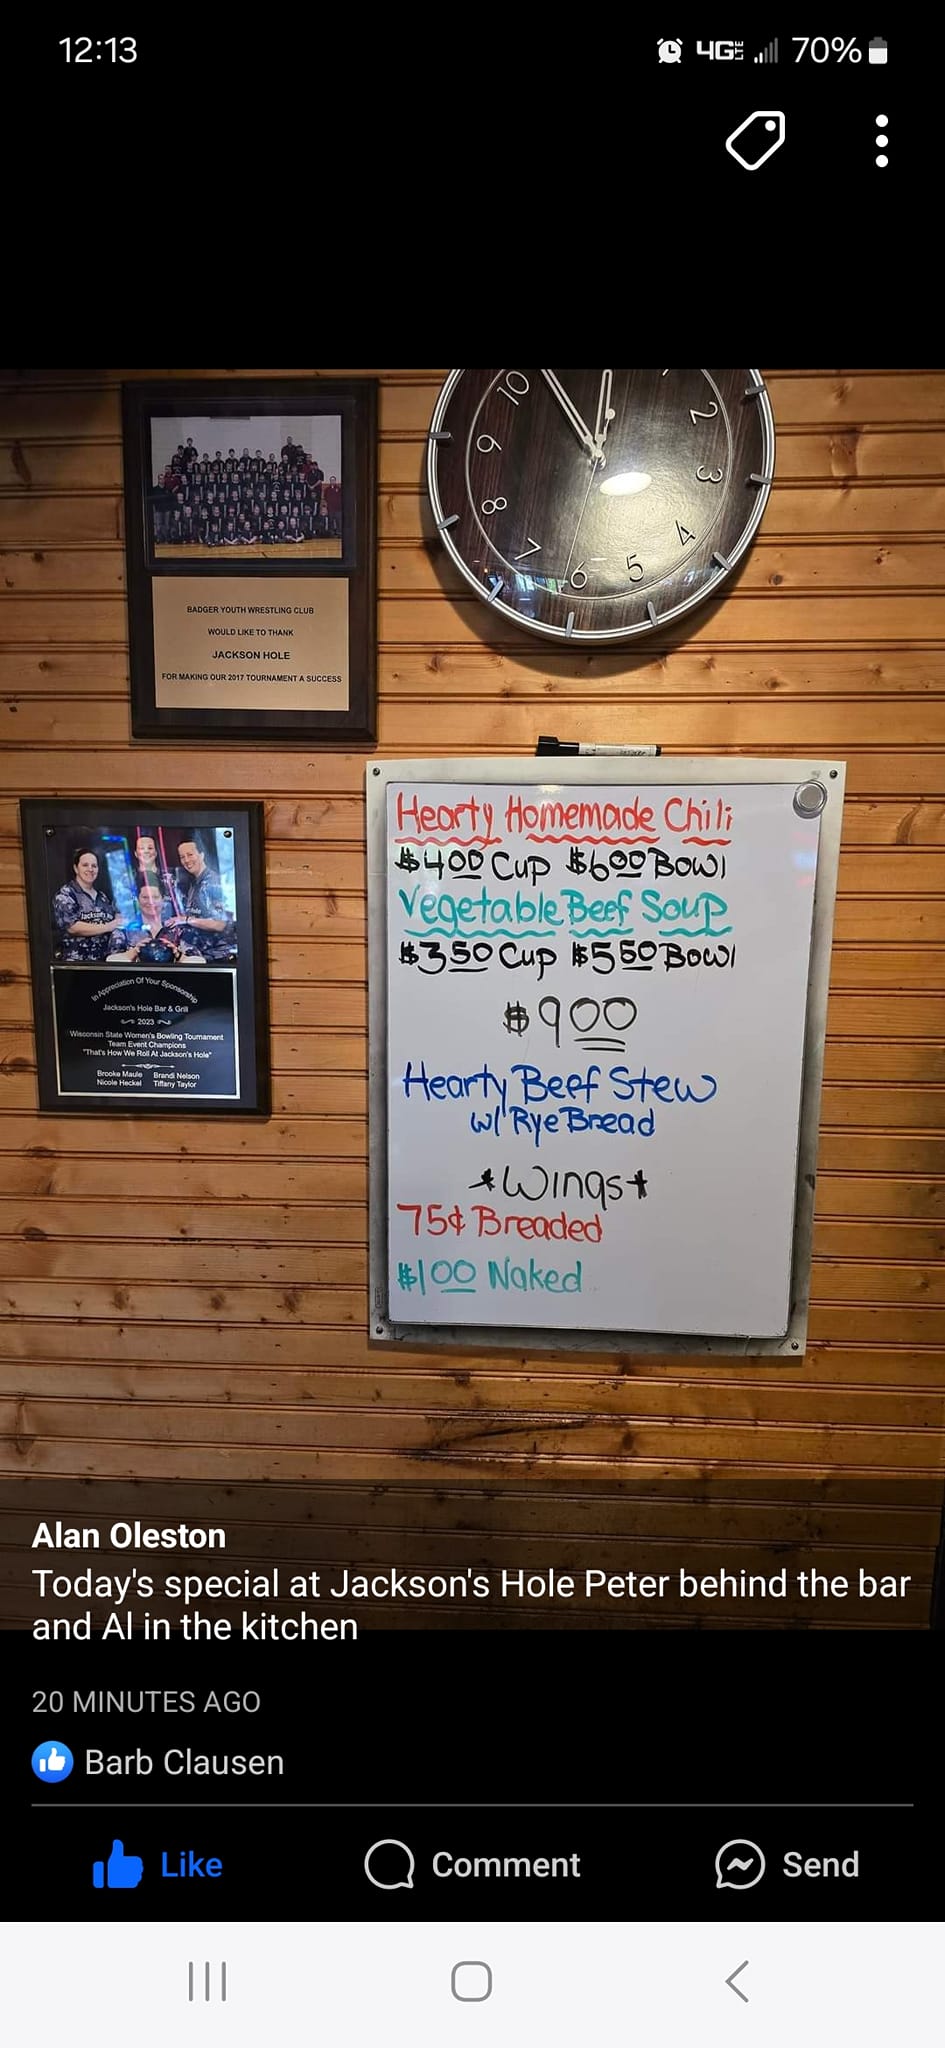 12:13
4G LTE 70%
10 2
9 3
8 4
7 6 5
BADGER YOUTH WRESTLING CLUB
WOULD LIKE TO THANK
JACKSON HOLE
FOR MAKING OUR 2017 TOURNAMENT A SUCCESS
Hearty Homemade Chili
$4.00 Cup $6.00 Bowl
Vegetable Beef Soup
$3.50 Cup $5.50 Bowl
$9.00
Hearty Beef Stew
w/ Rye Bread
*Wings*
75¢ Breaded
$1.00 Naked
In Appreciation Of Your Sponsorship
Jackson's Hole Bar & Grill
2023
Wisconsin State Women's Bowling Tournament
Team Event Champions
"That's How We Roll At Jackson's Hole"
Brooke Maule Brandi Nelson
Nicole Heckel Tiffany Taylor
Alan Oleston
Today's special at Jackson's Hole Peter behind the bar
and Al in the kitchen
20 MINUTES AGO
Barb Clausen
Like Comment Send